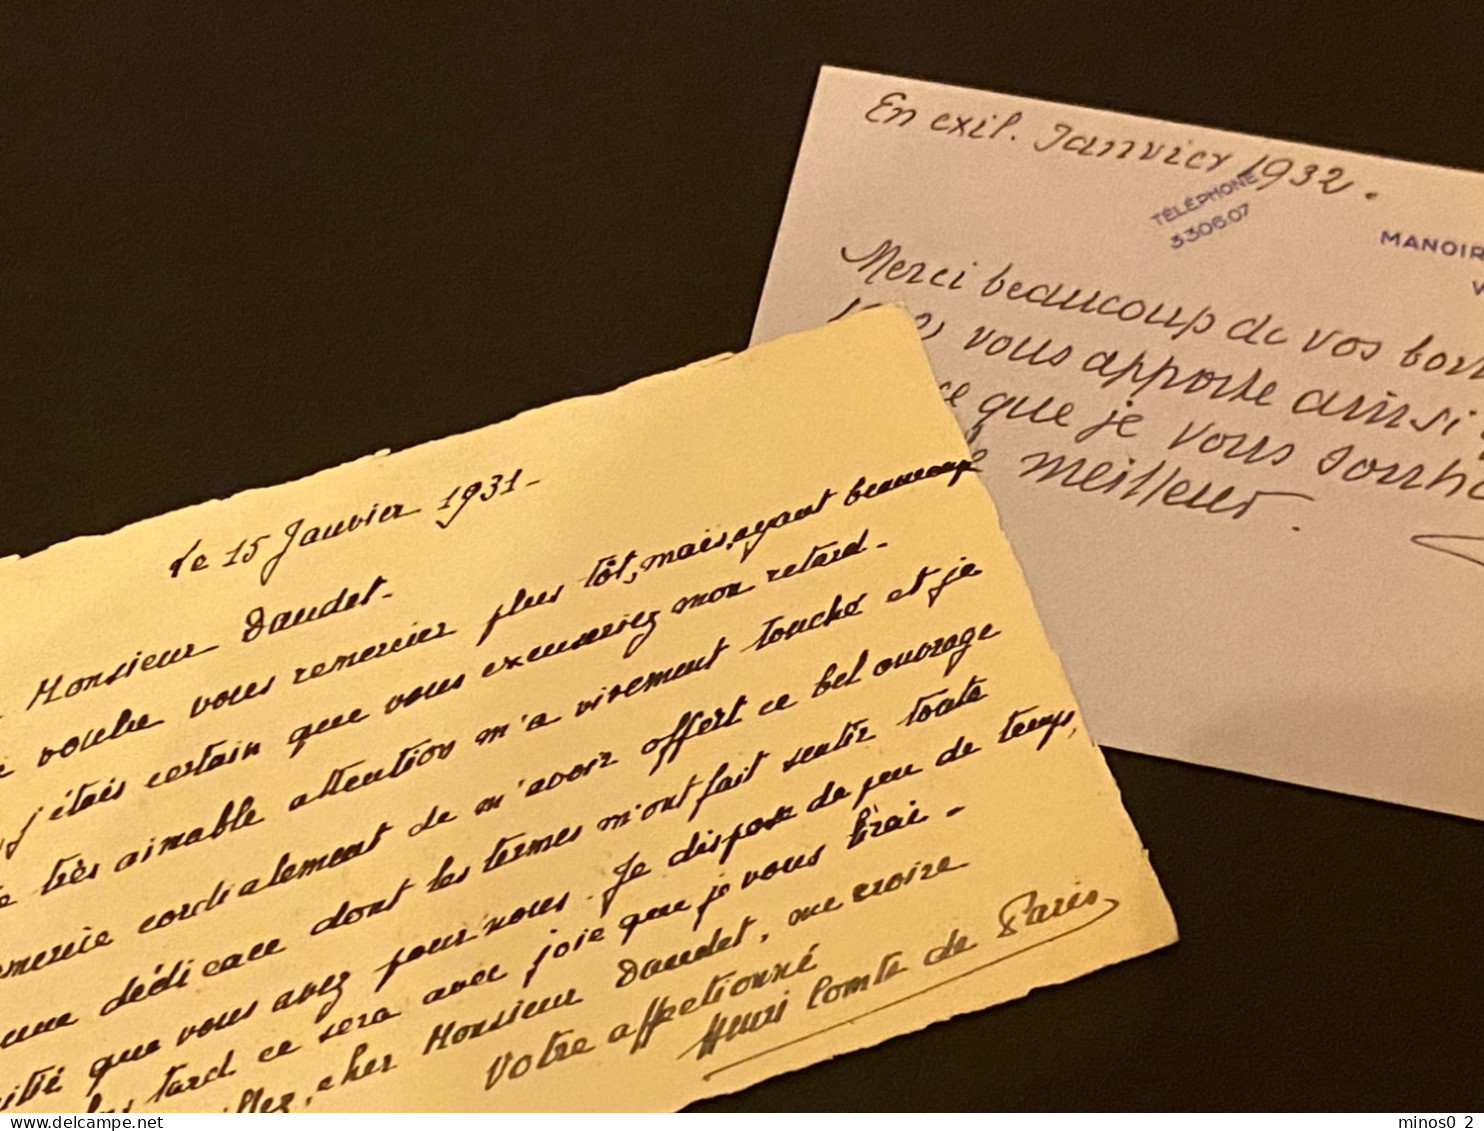 En exil. Janvier 1932.
TÉLÉPHONE
330607
MANOIR
Merci beaucoup de vos
vous apporte ainsi
ce que je vous
meilleur.
le 15 Janvier 1931-
Monsieur Daudet-
vous remercier plus tôt, mais, ayant beaucoup
j'étais certain que vous excuseriez mon retard-
très aimable attention m'a vivement touché et je
cordialement de m'avoir offert ce bel ouvrage
dédicace dont les termes m'ont fait sentir toute
que vous avez pour nous. Je dispose de peu de temps,
tard ce sera avec joie que je vous lirai-
cher Monsieur Daudet, me croire
Votre affectionné
Henri Comte de Paris
minos0_2